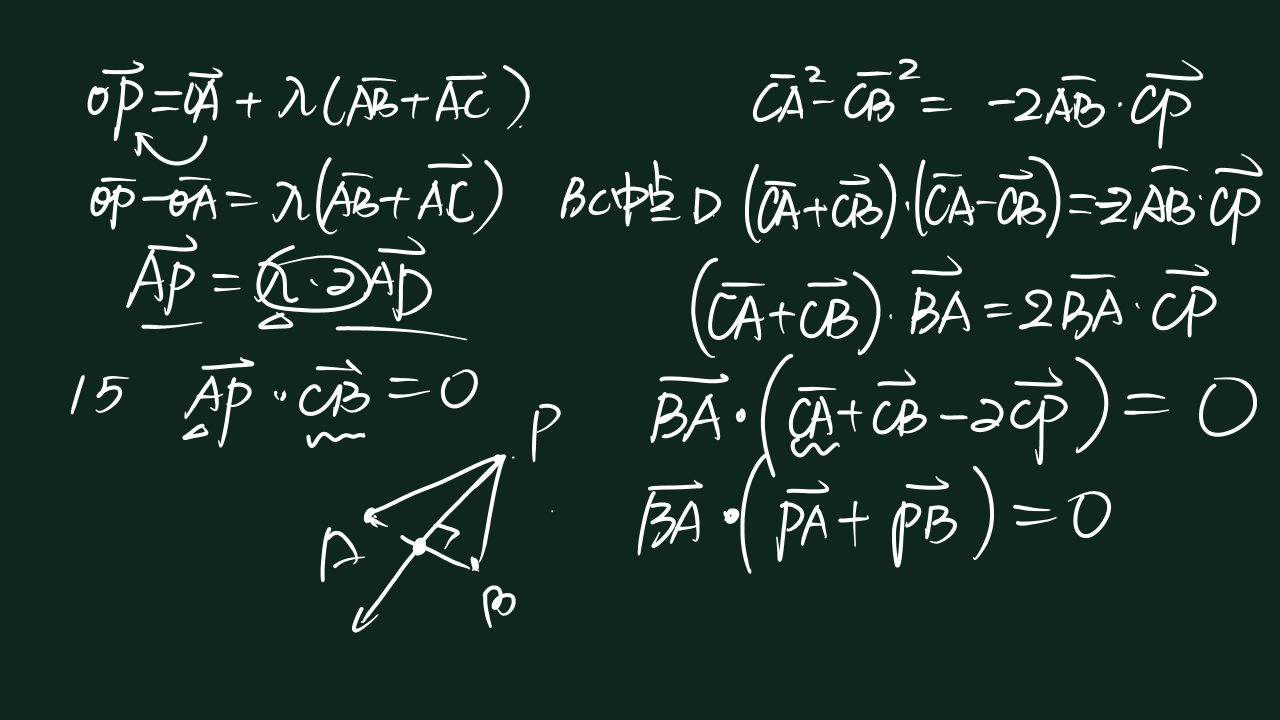 $\overrightarrow{OP} = \overrightarrow{OA} + \lambda(\overline{AB} + \overrightarrow{AC})$.
$\overline{OP} - \overline{OA} = \lambda(\overline{AB} + \overrightarrow{AC})$
BC中点 D
$\overrightarrow{AP} = \lambda \cdot 2\overrightarrow{AD}$
15 $\overrightarrow{AP} \cdot \overrightarrow{CB} = 0$
P
A
B
$\overline{CA}^2 - \overline{CB}^2 = -2\overline{AB} \cdot \overrightarrow{CP}$
$(\overline{CA} + \overrightarrow{CB}) \cdot (\overline{CA} - \overrightarrow{CB}) = -2\overline{AB} \cdot \overrightarrow{CP}$
$(\overline{CA} + \overrightarrow{CB}) \cdot \overrightarrow{BA} = 2\overline{BA} \cdot \overrightarrow{CP}$
$\overrightarrow{BA} \cdot (\overline{CA} + \overrightarrow{CB} - 2\overrightarrow{CP}) = 0$
$\overrightarrow{BA} \cdot (\overrightarrow{PA} + \overrightarrow{PB}) = 0$